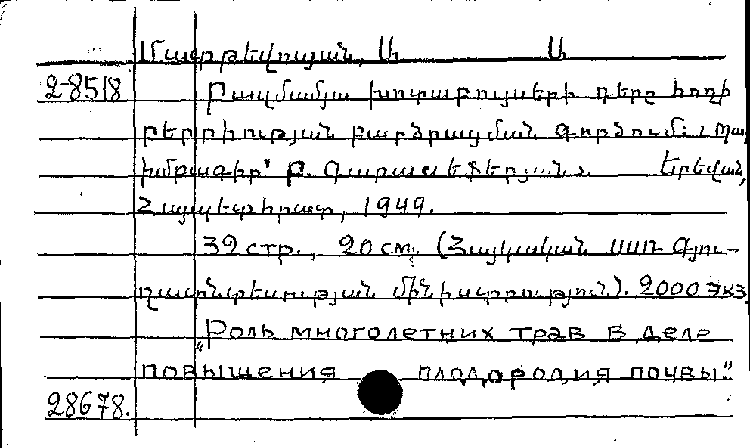 Մարթեվոսյան, Ա Ա
2-8518 Բազմամյա խոտաբույսերի դերը հողի
բերրիության բարձրացման գործում: Պատ.
խմբագիր՝ Բ.
Երեվան,
Հայպետհրատ, 1949.
32 стр., 20 см. (Հայկական ՍՍՌ Գյու-
ղատնտեսության մինիստրություն). 2000 экз.
"Роль многолетних трав в деле
повышения плодородия почвы."
28678.